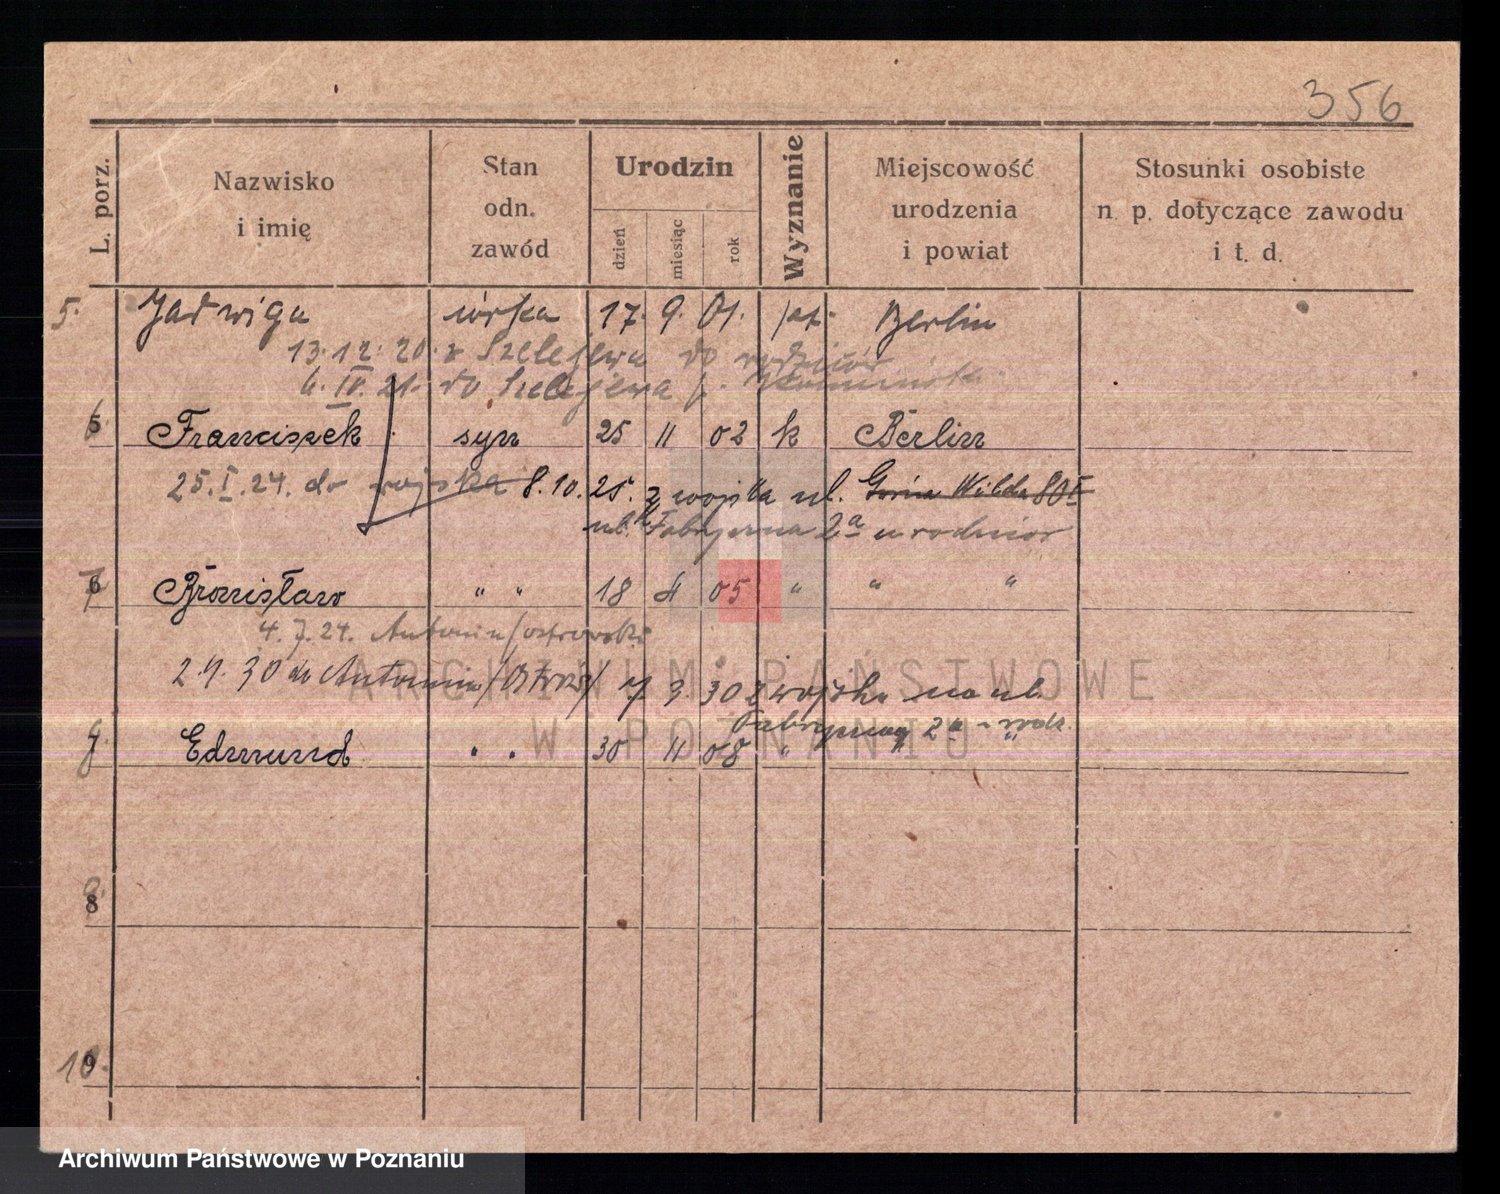 356
L. porz.
Nazwisko i imię
Stan odn. zawód
Urodzin
dzień
miesiąc
rok
Wyznanie
Miejscowość urodzenia i powiat
Stosunki osobiste n. p. dotyczące zawodu i t. d.
5. Jadwiga córka 17. 9. 01. kat. Berlin
13.12.20. z Szelejewa do rodziców
6. IV. 21. do Szelejewa p.
6 Franciszek syn 25 11 02 k Berlin
25. I. 24. do wojska 8.10.25. z wojska ul. Górna Wilda 80 I
ul. Fabryczna 2a u rodziców
7 Bronisław " " 18 4 05 " " "
4. 7. 24. Antonin/ostrowski
2.4.30 do Antonina/Ostrow/ 17 9 30 z wojska na ul.
Fabryczną 2a u rodz.
Edmund " " 30 11 08 " "
8
10.
ARCHIWUM PAŃSTWOWE
W POZNANIU
Archiwum Państwowe w Poznaniu